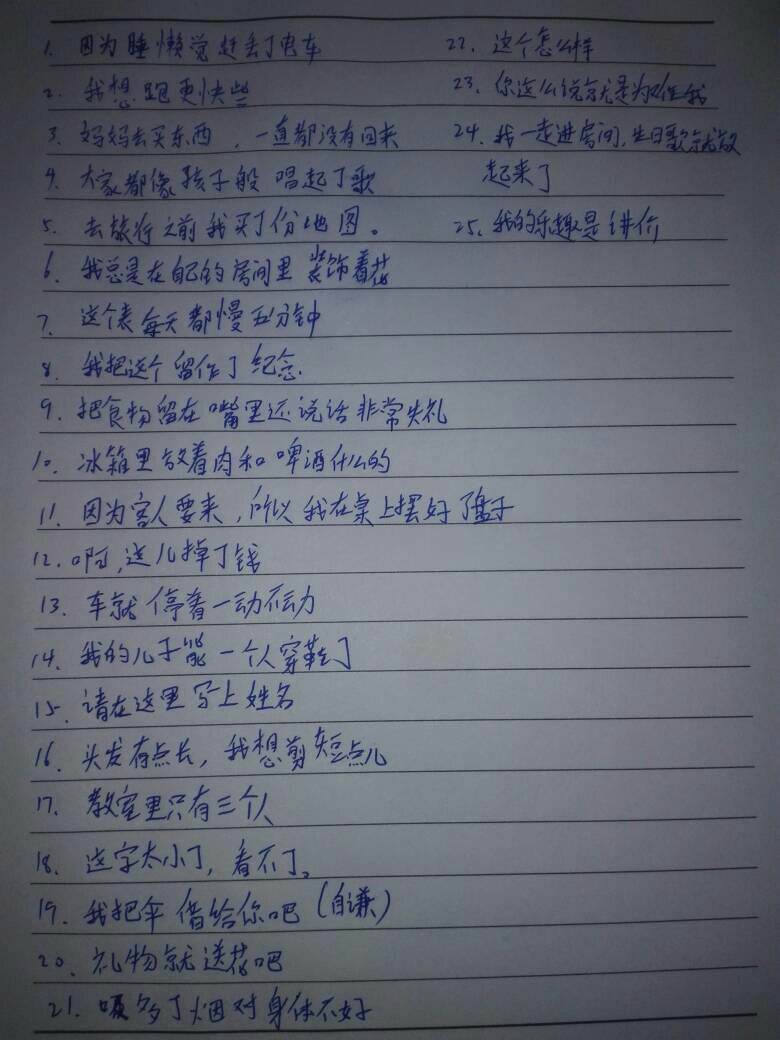 1. 因为睡懒觉赶丢了电车
2. 我想跑更快些
3. 妈妈去买东西，一直都没有回来
4. 大家都像孩子般 唱起了歌
5. 去旅行之前我买了份地图。
6. 我总是在自己的房间里 装饰着花
7. 这个表每天都慢五分钟
8. 我把这个留作了纪念
9. 把食物留在嘴里还说话非常失礼
10. 冰箱里放着肉和啤酒什么的
11. 因为客人要来，所以我在桌上摆好了盘子
12. 啊，这儿掉了钱
13. 车就停着一动不动
14. 我的儿子能一个人穿鞋了
15. 请在这里写上姓名
16. 头发有点长，我想剪短点儿
17. 教室里只有三个人
18. 这字太小了，看不了。
19. 我把伞借给你吧（自谦）
20. 礼物就送花吧
21. 吸多了烟对身体不好
22. 这个怎么样
23. 你这么说就是为难我
24. 我一走进房间，生日歌就放
起来了
25. 我的乐趣是讲价